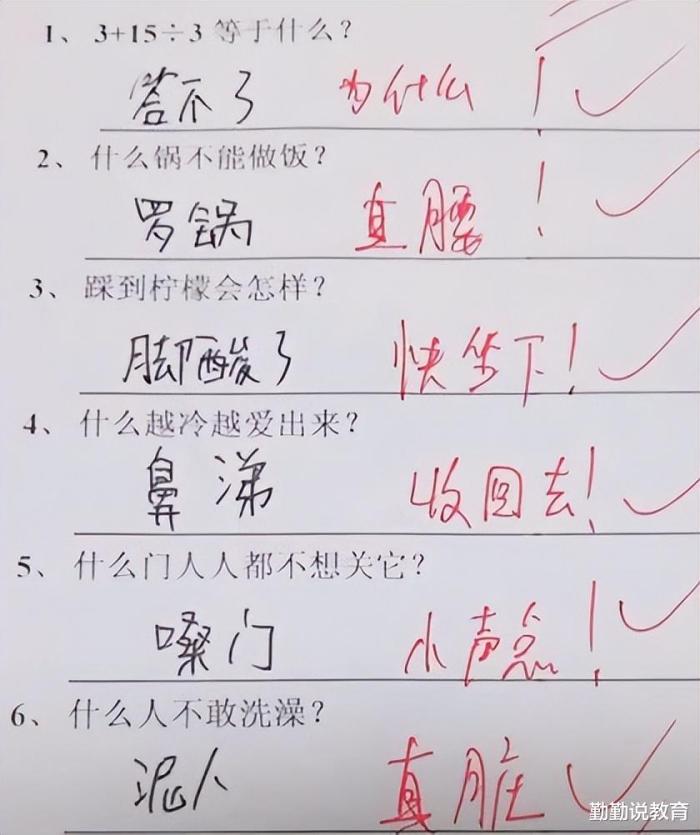 1、3+15÷3等于什么?
答不了 为什么!
2、什么锅不能做饭?
罗锅 直腰!
3、踩到柠檬会怎样?
脚酸了 快坐下!
4、什么越冷越爱出来?
鼻涕 收回去!
5、什么门人人都不想关它?
嗓门 小声点!
6、什么人不敢洗澡?
泥人 真脏
勤勤说教育